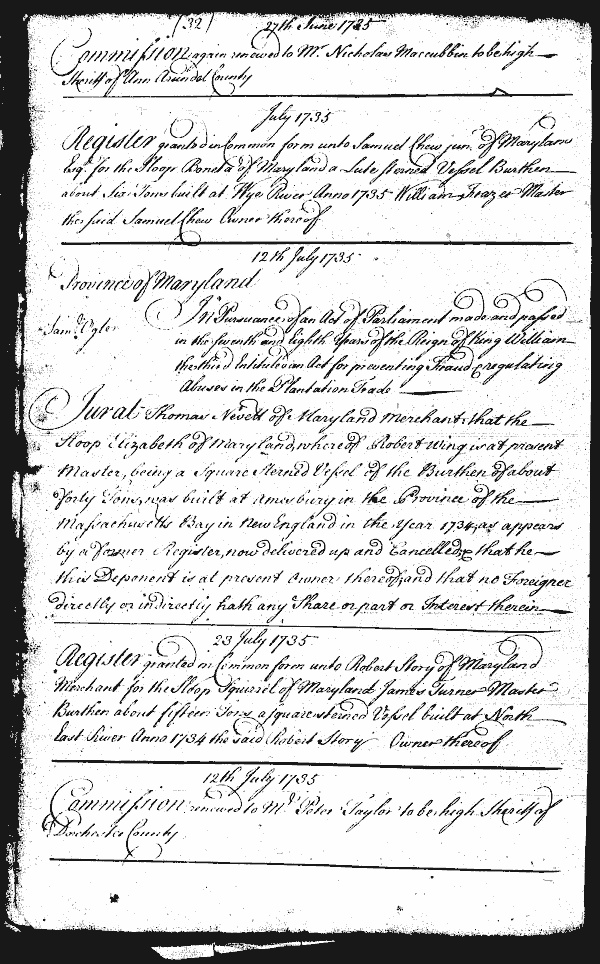 (32) 27th June 1735
Commission again renewed to Mr. Nicholas Maccubbin to be high
Sheriff of Ann Arundel County
July 1735
Register granted in Common form unto Samuel Chew junr. of Maryland
Esqr. for the Sloop Boneta of Maryland a Lute sterned Vessel Burthen
about Six Tons built at Wye River Anno 1735 William Frazer Master
the said Samuel Chew Owner thereof
12th July 1735
Province of Maryland
Saml. Ogle
In Pursuance of an Act of Parliament made and passed
in the seventh and Eighth Years of the Reign of King William
the third Intituled an Act for preventing Frauds & regulating
Abuses in the Plantation Trade
Jurat Thomas Nevett of Maryland Merchant, that the
Sloop Elizabeth of Maryland, whereof Robert Wing is at present
Master, being a Square Sterned Vessel of the Burthen of about
Forty Tons, was built at Amesbury in the Province of the
Massachusetts Bay in New England in the Year 1734, as appears
by a Former Register, now delivered up and Cancelled, that he
this Deponent is at present Owner thereof, and that no Foreigner
directly or indirectly hath any Share or part or Interest therein
23 July 1735
Register granted in Common form unto Robert Story of Maryland
Merchant for the Sloop Squirril of Maryland James Turner Master
Burthen about fifteen Tons a square sterned Vessel built at North
East River Anno 1734 the said Robert Story Owner thereof
12th July 1735
Commission renewed to Mr. Peter Taylor to be high Sheriff of
Dorchester County